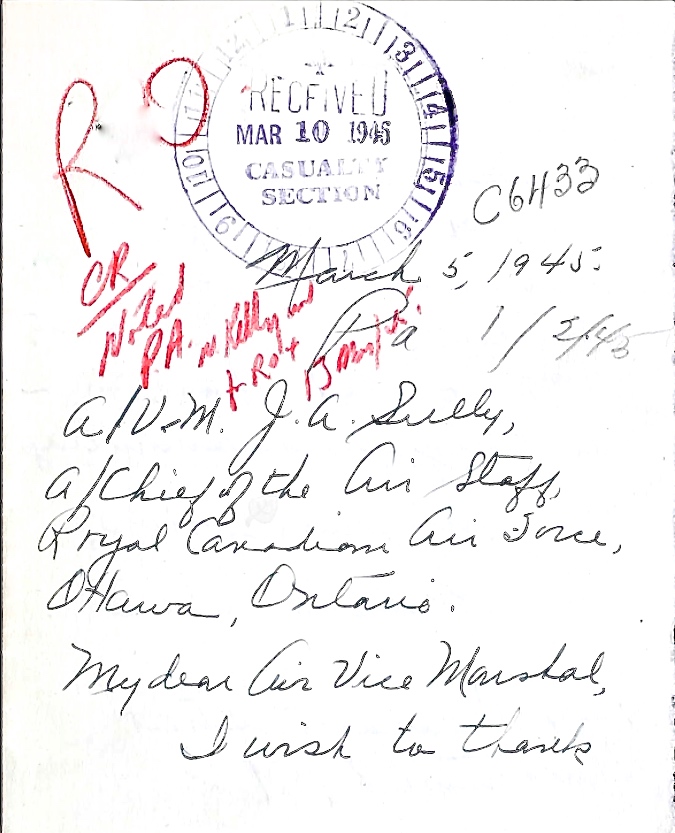 R O
12 1 2 3 4 5 6 7 9 10 11
RECEIVED
MAR 10 1945
CASUALTY
SECTION
C6433
March 5, 1945.
CR
Noted
P.A.
Pa 1/2/45
A/V.M. J.A. Sully,
A/Chief of the Air Staff,
Royal Canadian Air Force,
Ottawa, Ontario.
My dear Air Vice Marshal,
I wish to thank